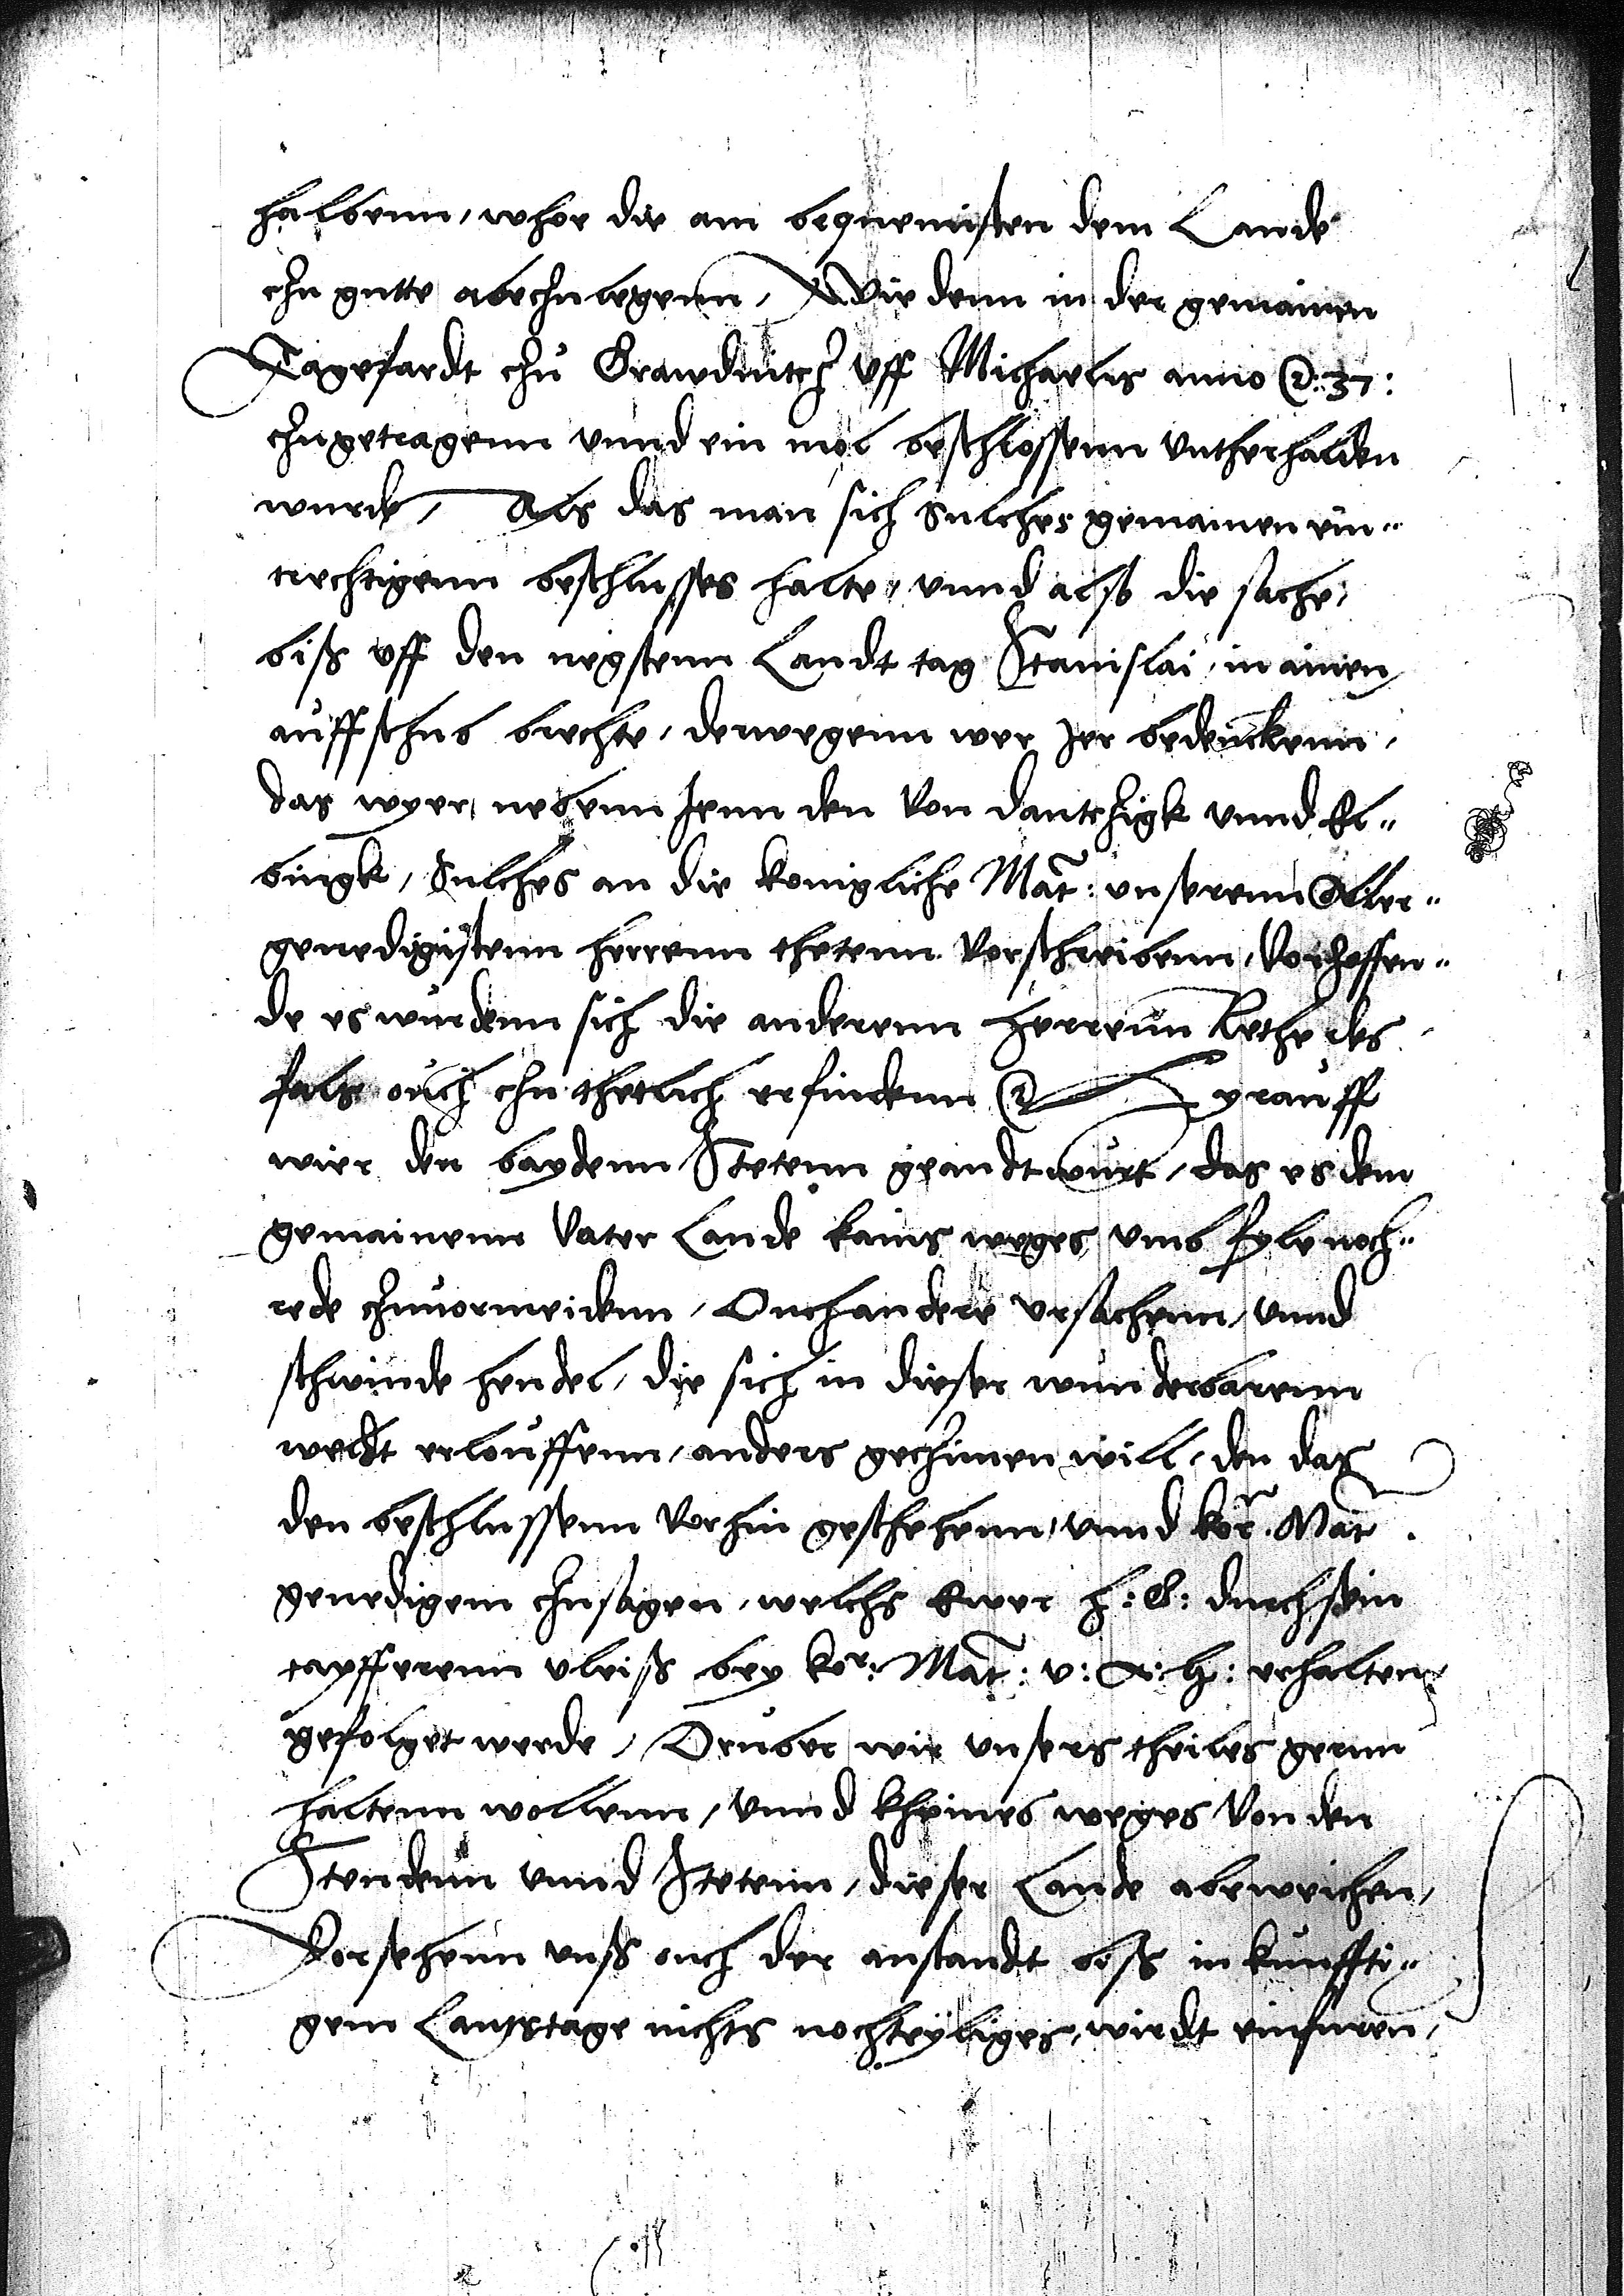 halbenn, whor die am bequemisten dem Lande
czu gutte abeczulegenn, Wie denn in der gemainen
Tagefardt czu Grawdnitcz uff Michaelis anno etc. 37:
czugetragenn unnd ein mol beschlossenn untherhalden
wurde, Als das man sich Sulches gemainen ein„
trechtigenn beschlusses halte, unnd also die sache,
biss uff den negstenn Landt tag Stanislai, in ainen
auffschub brechte, derwegenn wer jer bedenckenn,
das wyer, nebenn Jenn den Von dantczigk unnd El„
bingk, Sulches an die konigliche Mat: unserenn Aller„
genedigistenn herrenn thetenn Vorschreibenn, Vorhoffen„
de es wurdenn sich die anderenn herrenn Rethe des
fals ouch czu thetlich erfindenn etc. Hyrauff
wier den baydenn Stetenn geandtwurt, das es dem
gemainenn Vater Lande kains weges umb fyle noch„
rede czuvormeidenn, Ouch andere ursachenn, unnd
schwinde hendel, die sich in dieser wunderbarenn
weldt erlouffenn, anders geczimen will, den das
den beschlussenn Vorhin geschehenn, unnd kor. Mat.
genedigem czusagen, welchs Ewer h: G: durch sein
tayfferenn vleiss bey kor: Mat: v: A: h: erhalten,
gefolget werde, Druber wir unsers theiles gernn
haltenn wollenn, unnd kheines weges Von den
Stendenn unnd Stetenn, dieser Lande abeweichen,
Vorsehenn unss ouch der anstandt biss in kunffti„
gem Lanstage nichts nochteyliges, wirdt einfuren,